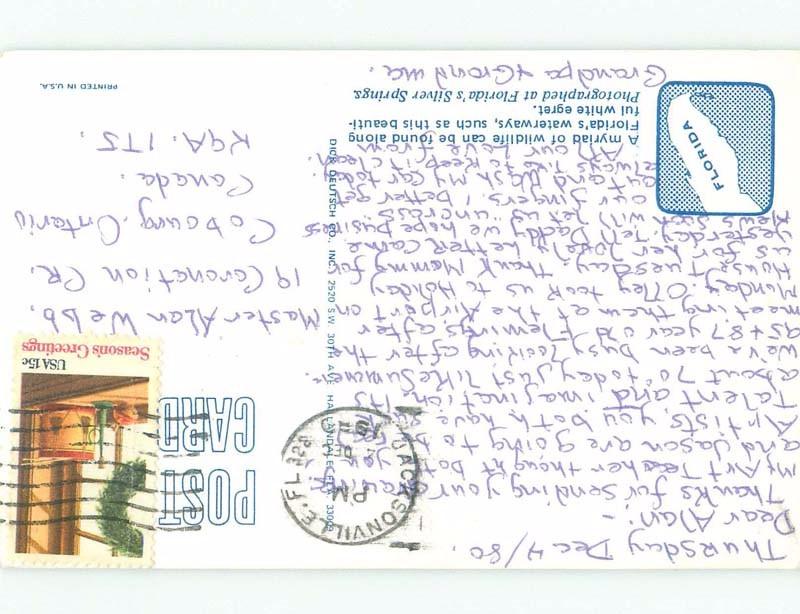 Thursday Dec 4/80.
Dear Alan:-
Thanks for sending your drawing
my Art Teacher thought both you
and Jason are going to be
Artists, you both have
Talent and imagination. It's
about 70° today just like Summer.
We've been busy looking after the
95 + 87 year old Flemings, after
meeting them at the Airport on
Monday. They took us to Holiday
House Tuesday. Thank Mommy for
us for her lovely letter came
yesterday. Tell Daddy we hope business
news will get us
our fingers. I better get
out and wash my car today
always like to keep it clean
All our Love from
Grandpa & Grandma.
A myriad of wildlife can be found along
Florida's waterways, such as this beauti-
ful white egret.
Photographed at Florida's Silver Springs.
FLORIDA
PRINTED IN U.S.A.
DICK DEUTSCH CO., INC. 2520 S.W. 30TH AVE. HALLANDALE, FLA. 33009
POST
CARD
JACKSONVILLE, FL 322
PM
DEC
1980
USA 15c
Season's Greetings
Master Alan Webb.
19 Coronation CR.
Cobourg. Ontario
Canada.
K9A. 1T5.